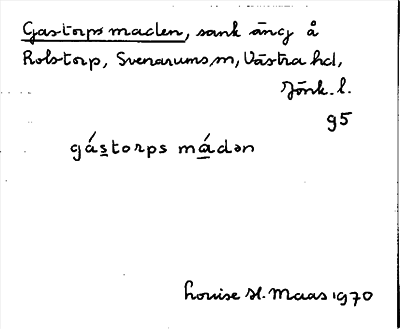 Gastorps maden, sank äng å
Rolstorp, Svenarums, m, Västra hd,
Jönk. l.
95
gástorps mádən
Louise H. Maas 1970